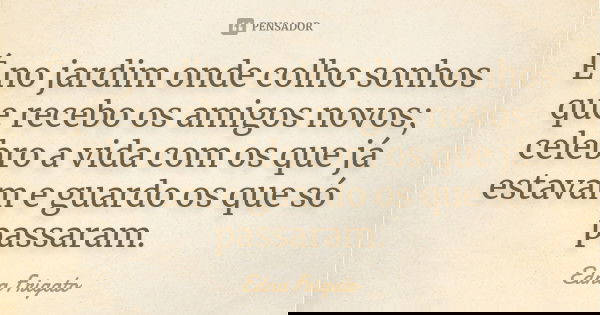 PENSADOR
É no jardim onde colho sonhos
que recebo os amigos novos;
celebro a vida com os que já
estavam e guardo os que só
passaram.
Edna Frigato